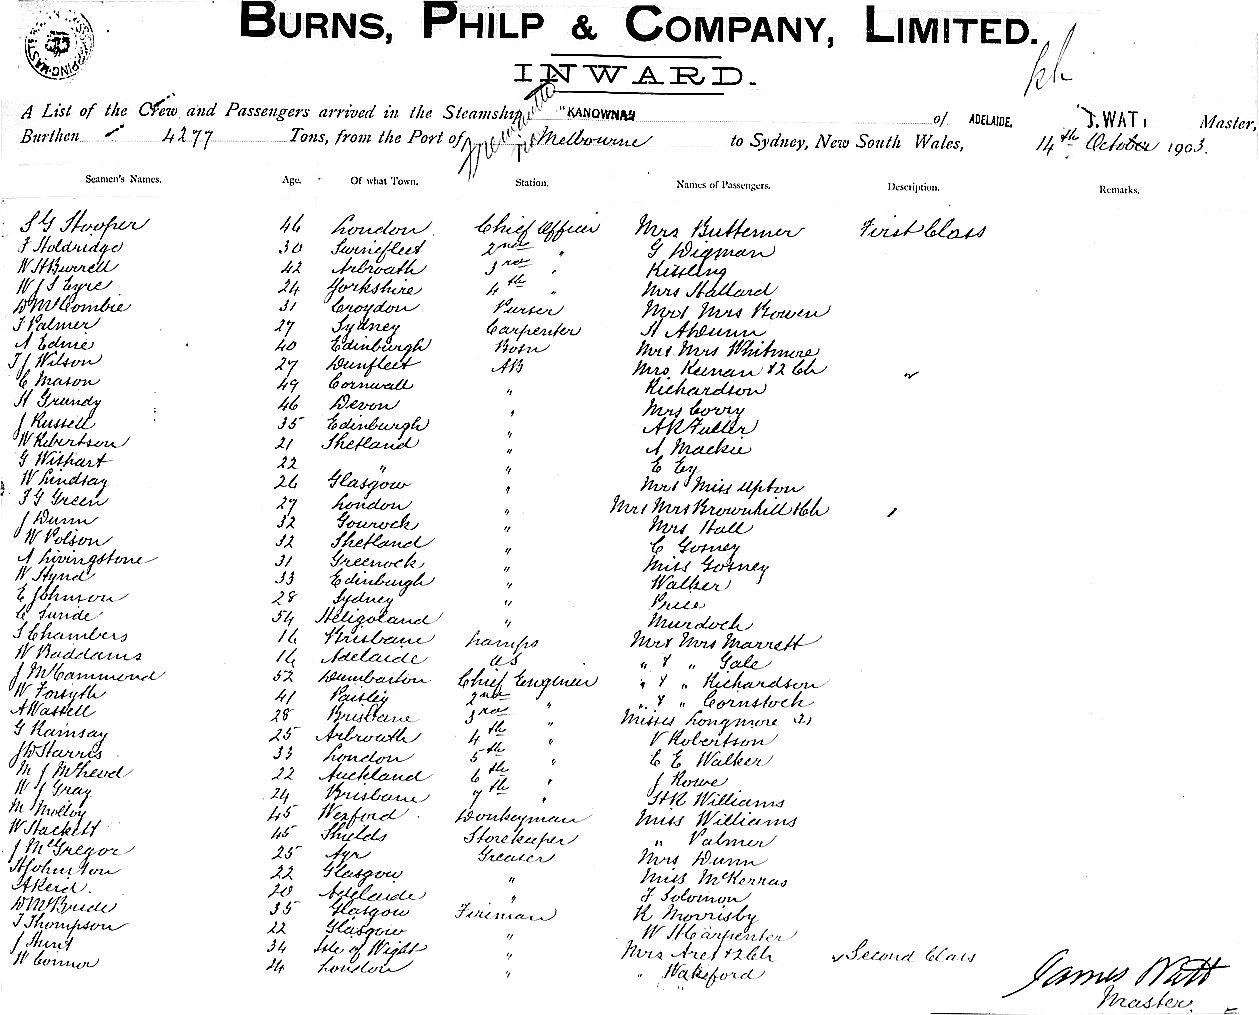 BURNS, PHILP & COMPANY, LIMITED.
INWARD.
A List of the Crew and Passengers arrived in the Steamship "KANOWNA" of ADELAIDE, J. WATT Master,
Burthen 4277 Tons, from the Port of Fremantle via Melbourne to Sydney, New South Wales, 14th October 1903.
Seamen's Names. Age. Of what Town. Station. Names of Passengers. Description. Remarks.
S G Hooper 46 London Chief Officer Mrs Buttemer First Class
F Holdridge 30 Swinefleet 2nd " G Wigman
W H Burrell 42 Arbroath 3rd " Kissling
W J S Eyre 24 Yorkshire 4th " Mrs Hallard
D McCombie 31 Croydon Purser Mr & Mrs Bowen
F Palmer 27 Sydney Carpenter H A Dunn
A Edmie 40 Edinburgh Bosn Mr & Mrs Whitmore
T J Wilson 27 Dunfleet AB Mrs Keenan & 2 Ch "
C Mason 49 Cornwall " Richardson
H Grundy 46 Devon " Mrs Corry
J Russell 35 Edinburgh " A R Fuller
W Robertson 21 Shetland " A Mackie
G Wishart 22 " " E Ey
W Lindsay 26 Glasgow " Mr & Miss Upton
F G Green 27 London " Mr & Mrs Brownhill & Ch "
J Dunn 32 Gourock " Mrs Hall
W Polson 32 Shetland " C Gosney
A Livingstone 31 Greenock " Miss Gosney
W Hynd 33 Edinburgh " Walker
E Johnson 28 Sydney " Price
C Lunde 54 Heligoland " Murdoch
S Chambers 16 Brisbane Lamps Mr & Mrs Marrett
W Baddams 16 Adelaide OS " & " Gale
J McCammond 52 Dumbarton Chief Engineer " & " Richardson
W Forsyth 41 Paisley 2nd " " & " Cornstock
A Wassell 28 Brisbane 3rd " Misses Longmore (2)
G Ramsay 25 Arbroath 4th " V Robertson
J D Harris 33 London 5th " C E Walker
M J McLeod 22 Auckland 6th " J Rowe
W J Gray 24 Brisbane 7th " H R Williams
M Molloy 45 Wexford Donkeyman Miss Williams
W Hackett 45 Shields Storekeeper " Palmer
J McGregor 25 Ayr Greaser Mrs Dunn
H Johnston 22 Glasgow " Miss McKerras
A Kerd. 20 Adelaide " F Solomon
D McBride 35 Glasgow Fireman R Morrisby
T Thompson 22 Glasgow " W H Carpenter
J Hunt 34 Isle of Wight " Mrs Arct & 2 Ch Second Class
W Connor 24 London " " Wakeford
James Watt
Master.